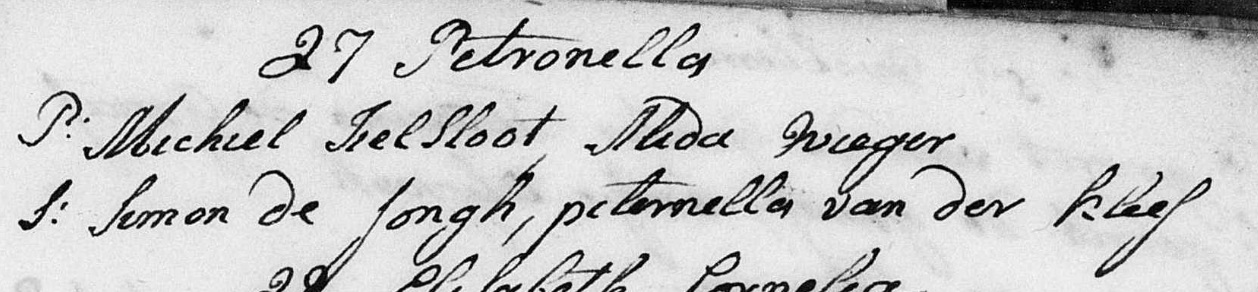 27 Petronella
P: Michiel Fielsloot, Alida Wieger
S: Simon de Jongh, peternella van der Kleef
28 Elisabeth Cornelia